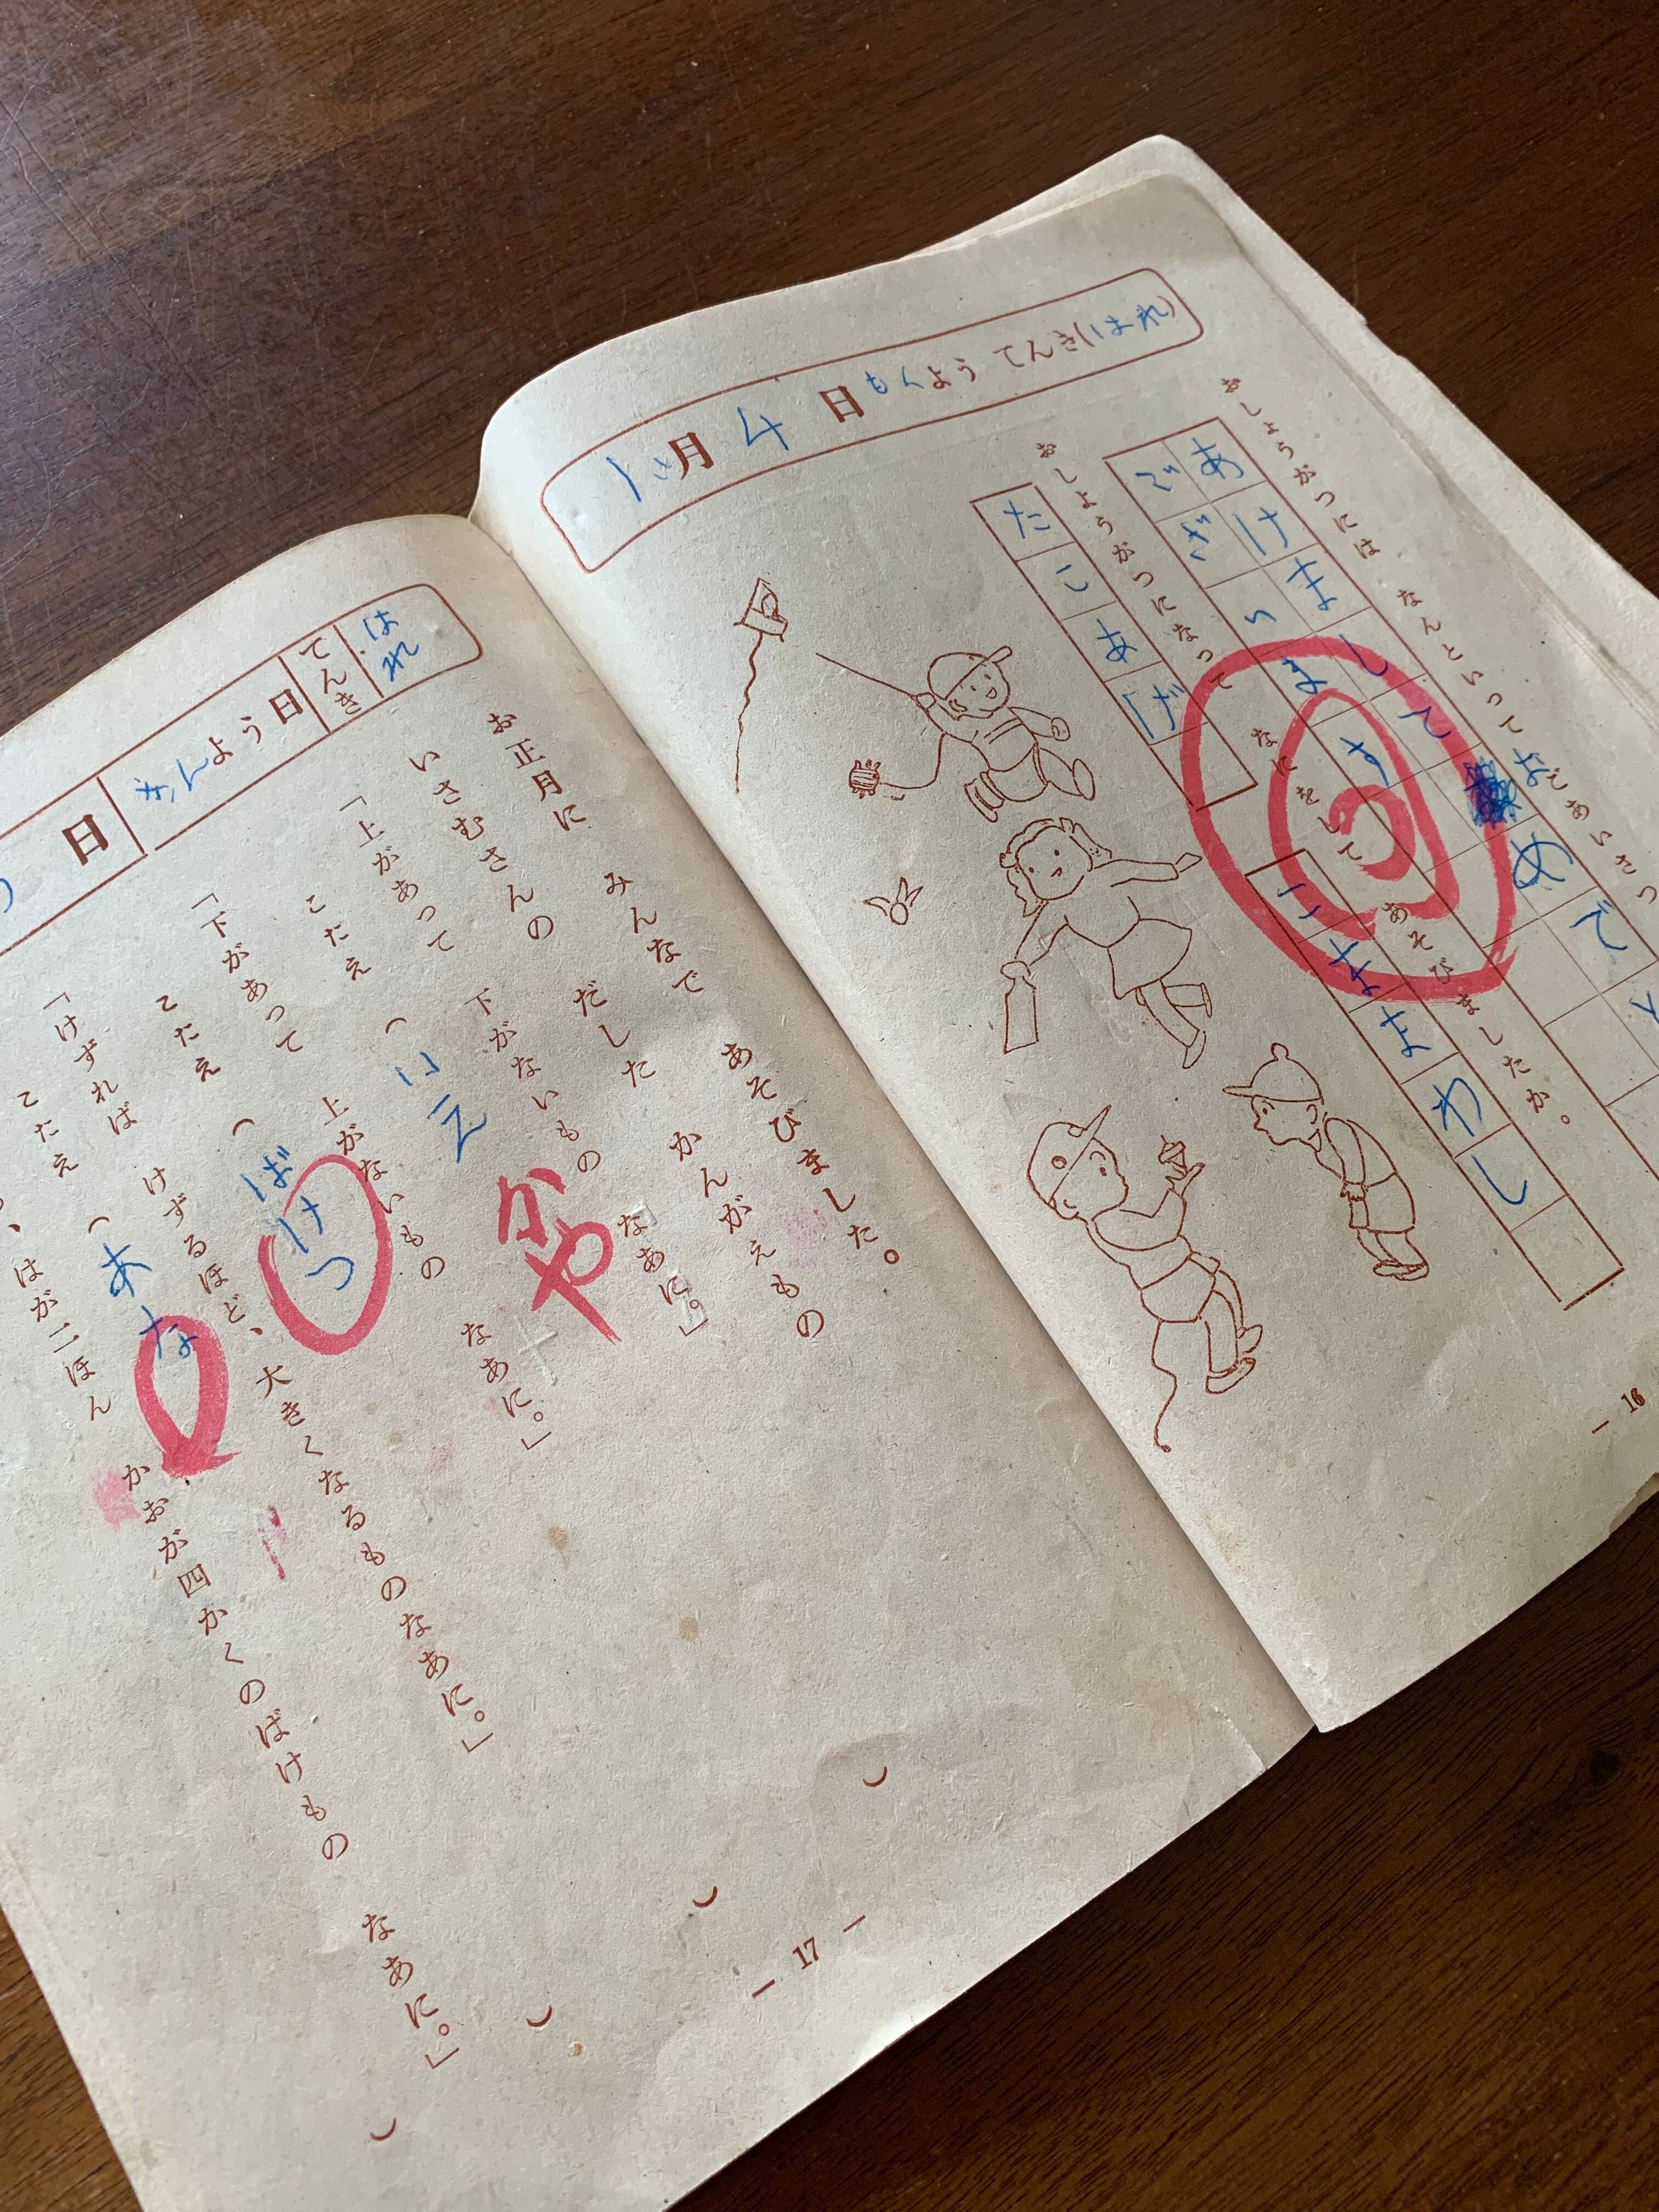 おしょうがつには、なんといってあいさつ
あけまして
めでと
ございます
おしょうがつになって なにをして あそびましたか。
たこあげ
こままわし
月4日もくようてんき(はれ)
— 16
お正月に みんなで あそびました。
いさむさんの だした かんがえもの
「上があって 下がないもの なあに。」
こたえ ( いえ )
かや
「下があって 上がないもの なあに。」
こたえ ( ばけつ )
「けずれば けずるほど、大きくなるものなあに。」
こたえ ( あな )
はが二ほん かおが四かくのばけもの なあに。」
日
きんよう日
てんき
はれ
— 17 —